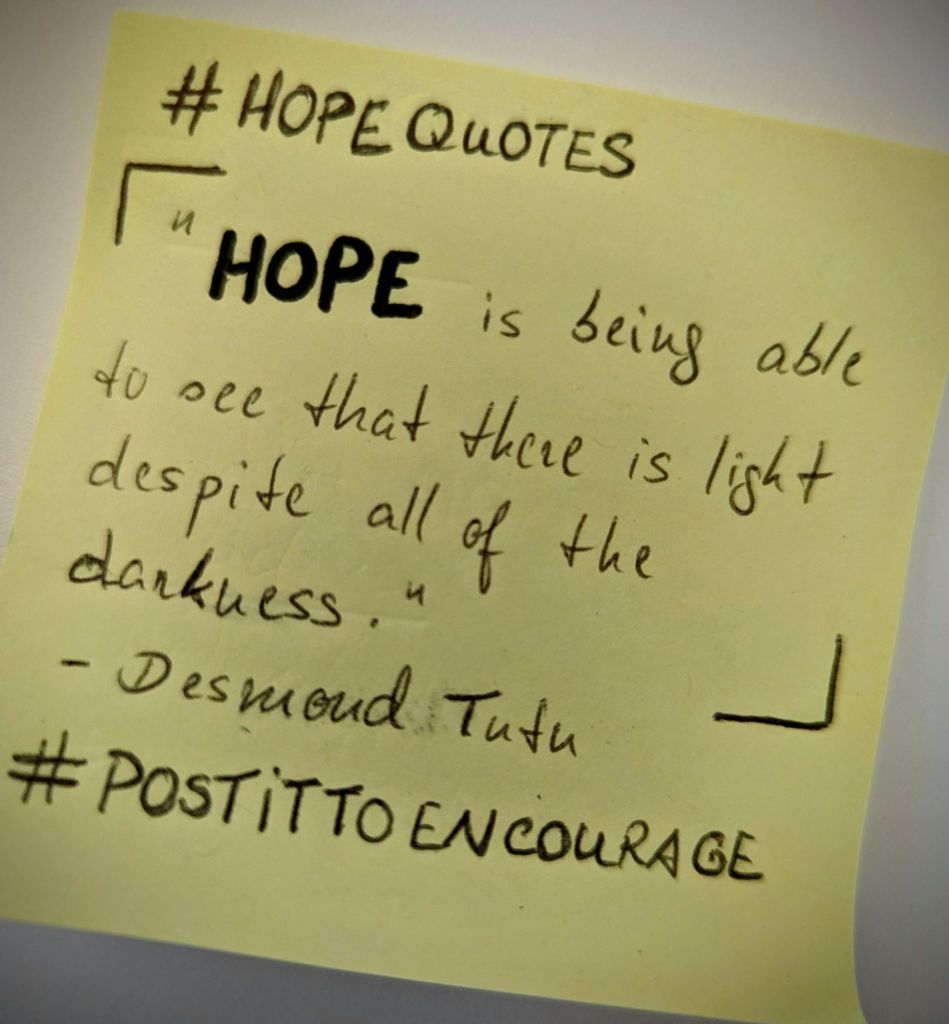 #HOPEQUOTES
"HOPE is being able
to see that there is light
despite all of the
darkness."
- Desmond Tutu
#POSTiTTOENCOURAGE